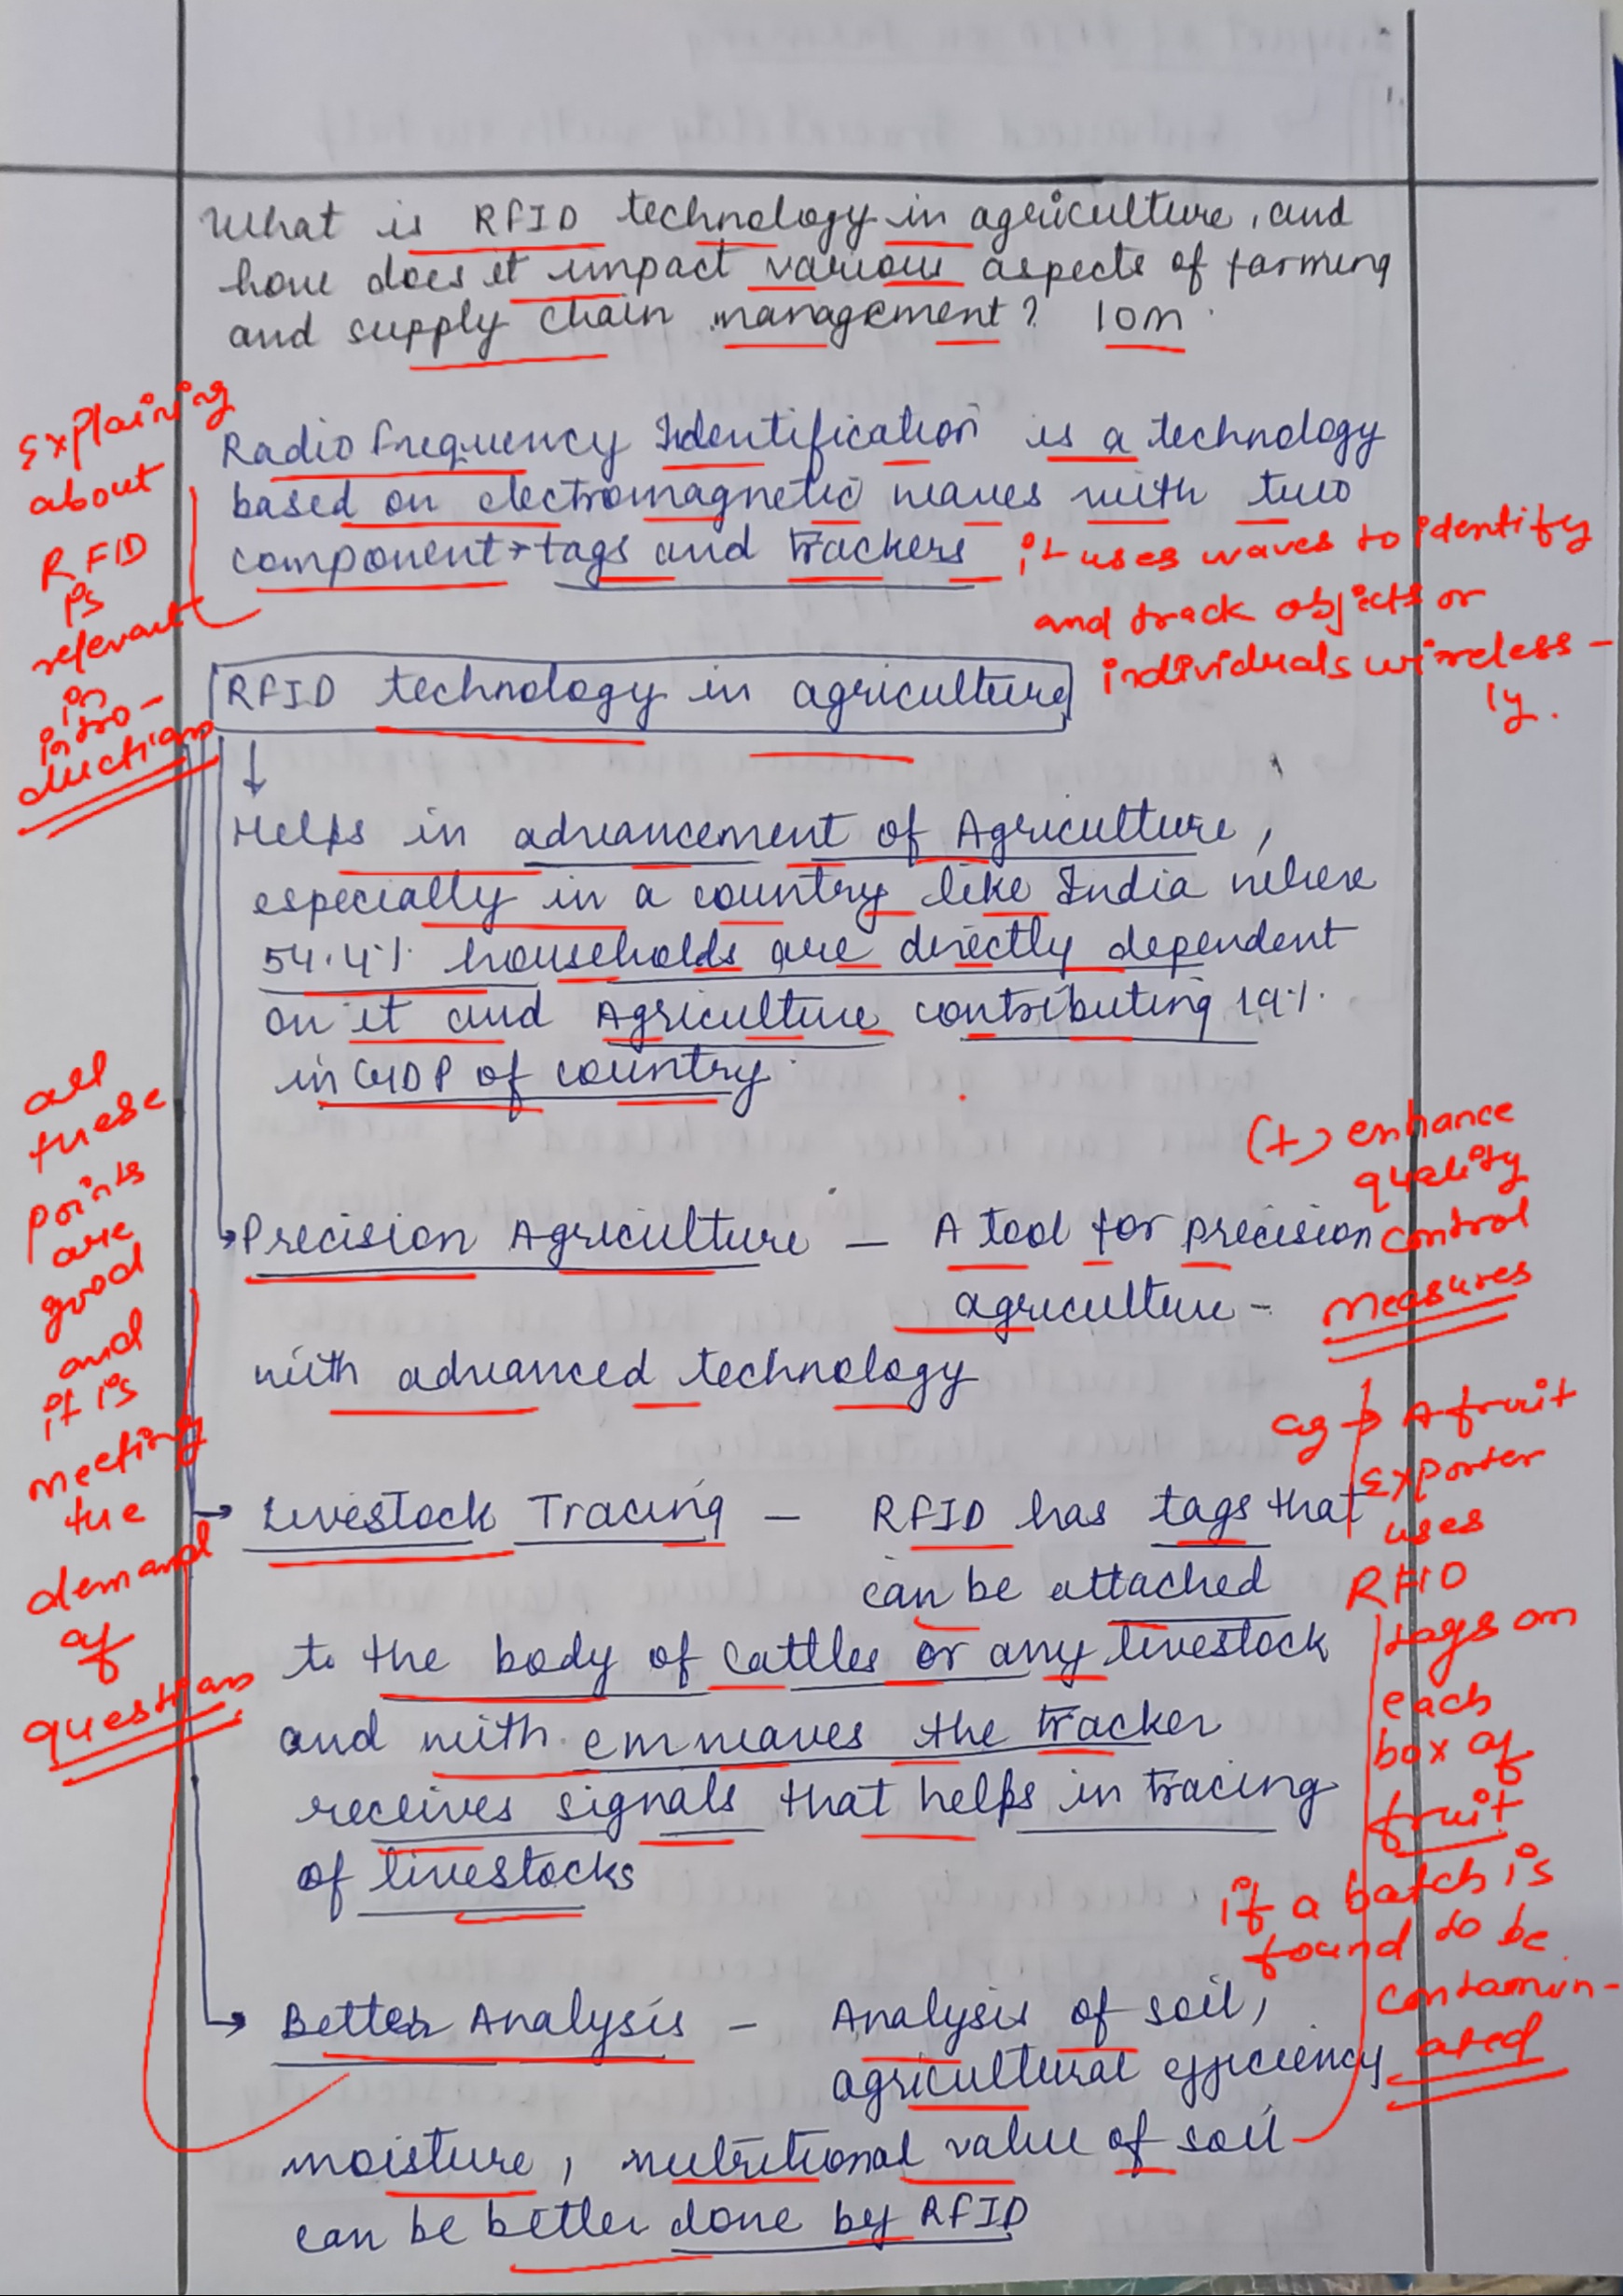 What is RFID technology in agriculture, and
how does it impact various aspects of farming
and supply chain management? 10m
Explaining
about
RFID
is
relevant
in
intro-
ductions
Radio frequency Identification is a technology
based on electromagnetic waves with two
component → tags and trackers
it uses waves to identify
and track objects or
individuals wireless-
ly.
RFID technology in agriculture
Helps in advancement of Agriculture,
especially in a country like India where
54.4% households are directly dependent
on it and Agriculture contributing 19%
in GDP of country.
all
these
points
are
good
and
it is
meeting
the
demand
of
questions
(+) enhance
quality
control
measures
Precision Agriculture — A tool for precision
agriculture -
with advanced technology
eg → A fruit
Exporter
uses
RFID
tags on
each
box of
fruit
if a batch is
found to be
contamin-
ated
Livestock Tracing — RFID has tags that
can be attached
to the body of cattles or any livestock
and with em waves the tracker
receives signals that helps in tracing
of livestocks
Better Analysis — Analysis of soil,
agricultural efficiency
moisture, nutritional value of soil
can be better done by RFID